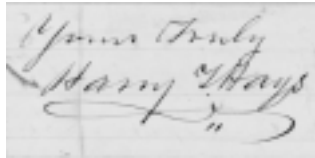 Yours Truly
Harry T Hays